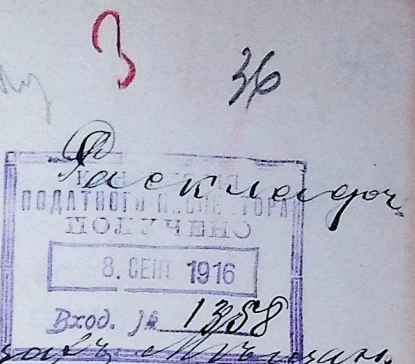 3
36
Раскладоч.
ПОДАТНОГО ИНСПЕКТОРА
ПОЛУЧЕНО
8. СЕНТ 1916
Вход. № 1358